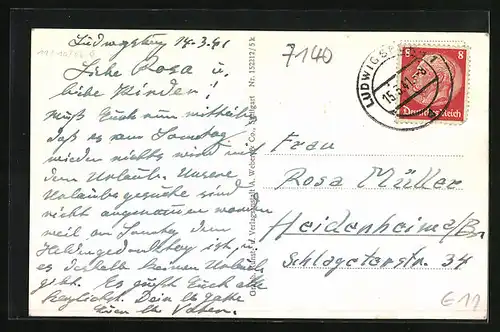 Ludwigsburg 14.3.41
Liebe Rosa u.
liebe Kinder!
Muß Euch nun mitteilen
daß es am Samstag
wieder nichts wird mit
dem Urlaub. Unsere
Urlaubsgesuche sind
nicht angenommen worden
weil am Sonntag dem
Heldengedenktag ist, u.
es deshalb keinen Urlaub
gibt. Es grüßt Euch alle
herzlichst. Dein lb Gatte
Euer lb Vater.
7140
LUDWIGSBURG
15.3.41
8
Deutsches Reich
Frau
Rosa Müller
Heidenheim a/Br.
Schlageterstr. 34
E11